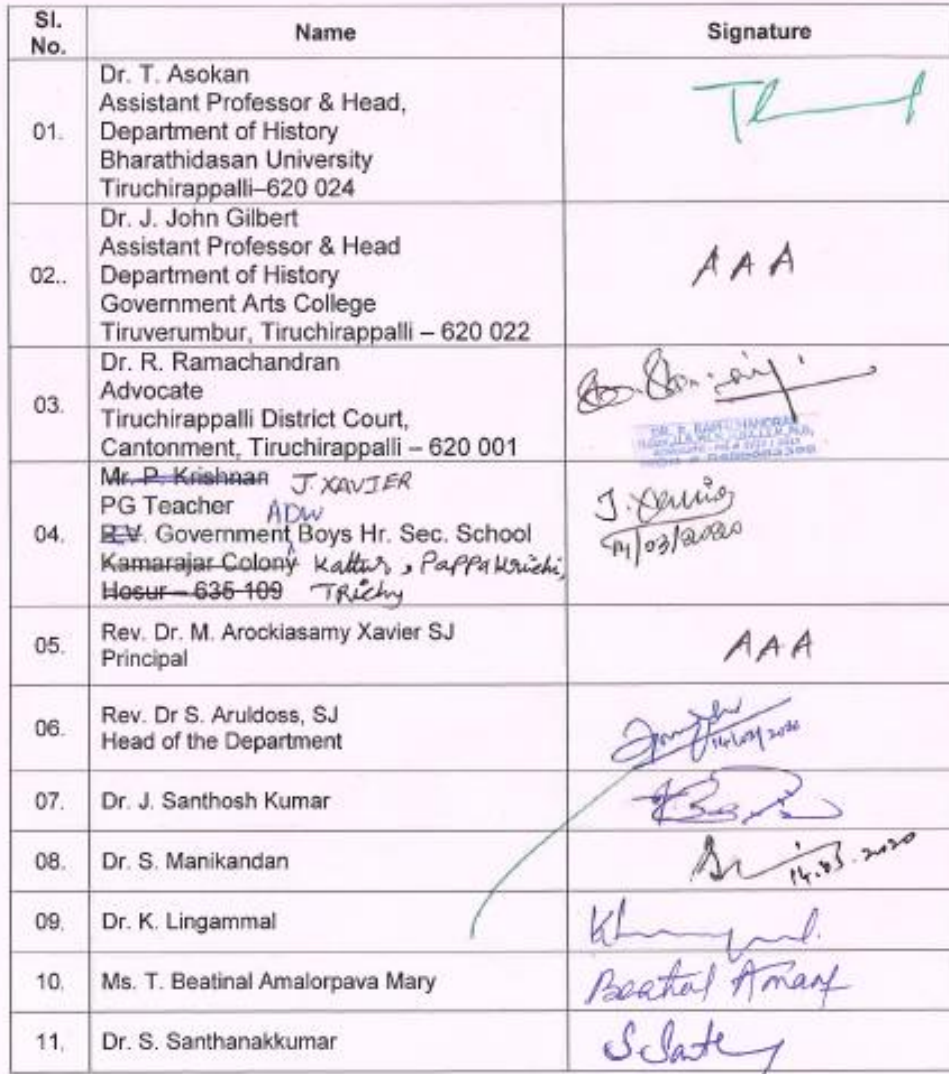 Sl. No. Name Signature
Dr. T. Asokan
Assistant Professor & Head,
01. Department of History
Bharathidasan University
Tiruchirappalli–620 024
Dr. J. John Gilbert
Assistant Professor & Head
02.. Department of History A A A
Government Arts College
Tiruverumbur, Tiruchirappalli – 620 022
Dr. R. Ramachandran
Advocate
03. Tiruchirappalli District Court,
Cantonment, Tiruchirappalli – 620 001
Mr. P. Krishnan J. XAVIER
PG Teacher ADW J. Xavier
04. R.V. Government Boys Hr. Sec. School 14/03/2020
Kamarajar Colony Kattur, Pappakurichi,
Hosur – 635 109 TRichy
05. Rev. Dr. M. Arockiasamy Xavier SJ A A A
Principal
06. Rev. Dr S. Aruldoss, SJ
Head of the Department 14/03/2020
07. Dr. J. Santhosh Kumar
08. Dr. S. Manikandan 14.03.2020
09. Dr. K. Lingammal
10. Ms. T. Beatinal Amalorpava Mary
11. Dr. S. Santhanakkumar